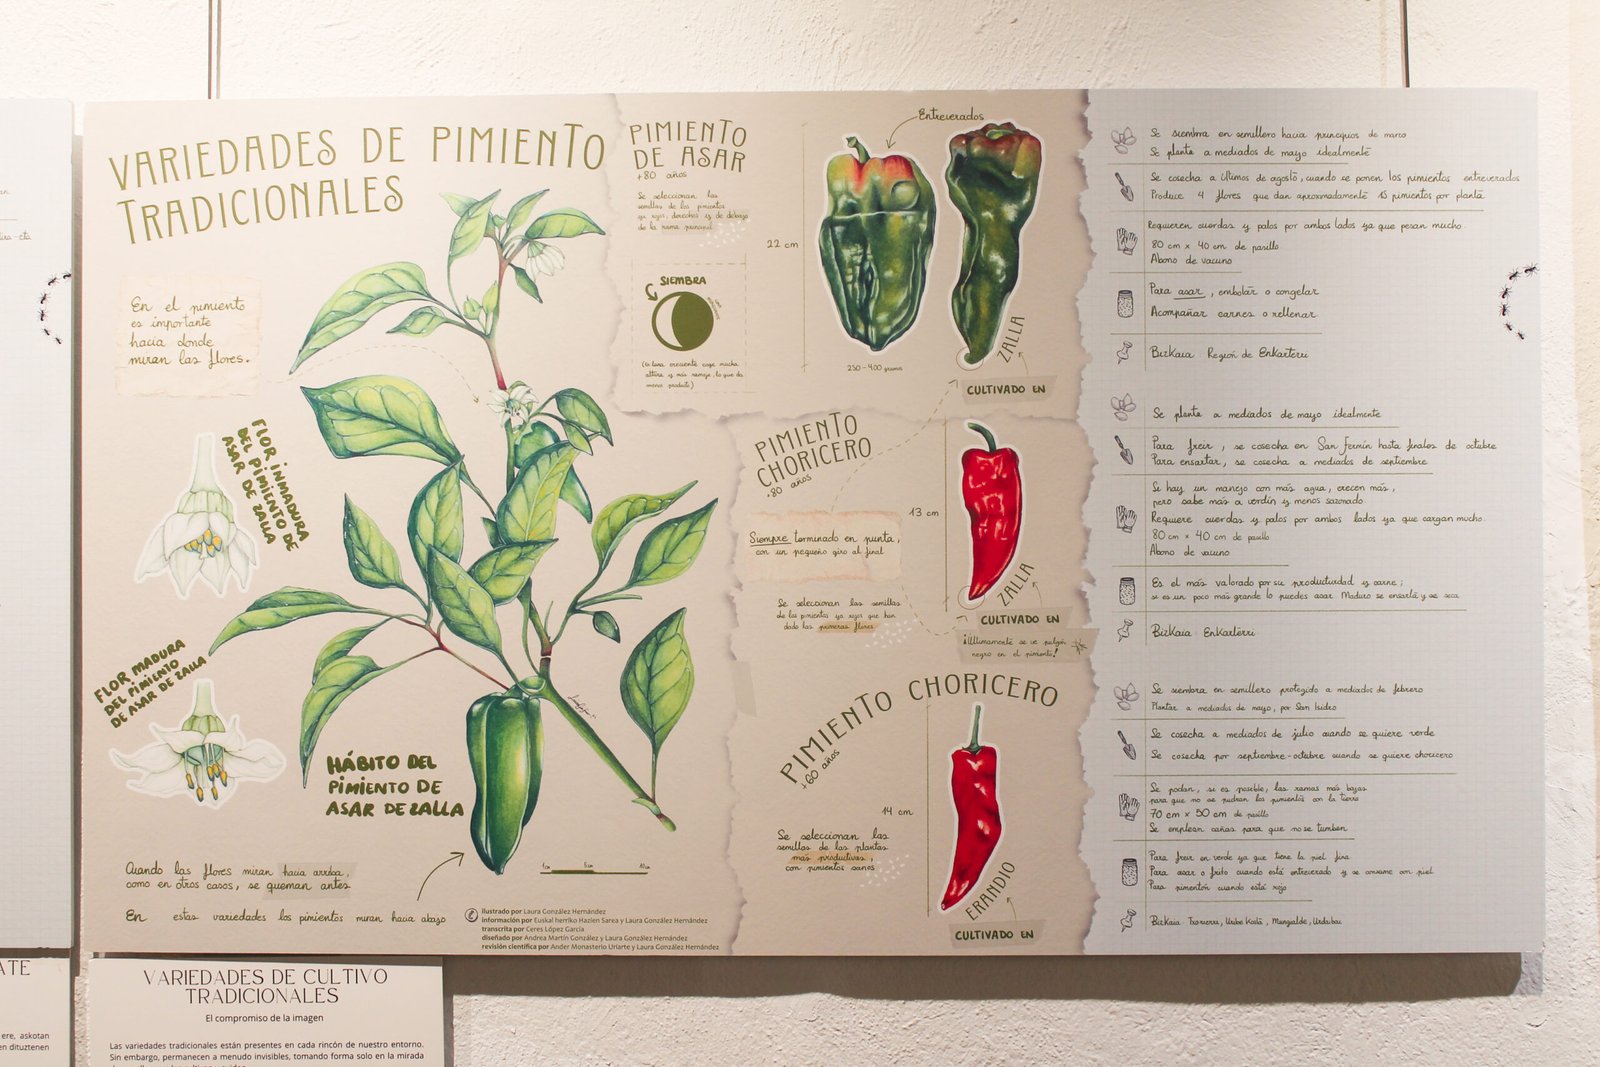 VARIEDADES DE PIMIENTO
TRADICIONALES
En el pimiento
es importante
hacia donde
miran las flores.
FLOR INMADURA
DEL PIMIENTO DE
ASAR DE ZALLA
FLOR MADURA
DEL PIMIENTO
DE ASAR DE ZALLA
HÁBITO DEL
PIMIENTO DE
ASAR DE ZALLA
Cuando las flores miran hacia arriba,
como en otros casos, se queman antes
En estas variedades los pimientos miran hacia abajo
1cm 5cm 10cm
Ilustrado por Laura González Hernández
información por Euskal herriko Hazien Sarea y Laura González Hernández
transcrita por Ceres López García
diseñado por Andrea Martín González y Laura González Hernández
revisión científica por Ander Monasterio Uriarte y Laura González Hernández
PIMIENTO
DE ASAR
+80 años
Se seleccionan las
semillas de los pimientos
ya rojos, derechos y de debajo
de la rama principal
SIEMBRA
(En luna creciente coge mucha
altura y más ramaje, lo que da
menos producto)
Entreverados
22 cm
250-400 gramos
ZALLA
CULTIVADO EN
PIMIENTO
CHORICERO
+80 años
Siempre terminado en punta,
con un pequeño giro al final
Se seleccionan las semillas
de los pimientos ya rojos que han
dado las primeras flores
13 cm
ZALLA
CULTIVADO EN
¡Últimamente se ve pulgón
negro en el pimiento!
PIMIENTO CHORICERO
+60 años
Se seleccionan las
semillas de las plantas
más productivas,
con pimientos sanos
14 cm
ERANDIO
CULTIVADO EN
Se siembra en semillero hacia principios de marzo
Se planta a mediados de mayo idealmente
Se cosecha a últimos de agosto, cuando se ponen los pimientos entreverados
Produce 4 flores que dan aproximadamente 15 pimientos por planta
Requieren cuerdas y palos por ambos lados ya que pesan mucho.
80 cm x 40 cm de pasillo
Abono de vacuno
Para asar, embotar o congelar
Acompañar carnes o rellenar.
Bizkaia Región de Enkarterri
Se planta a mediados de mayo idealmente
Para freír, se cosecha en San Fermín hasta finales de octubre
Para ensartar, se cosecha a mediados de septiembre
Si hay un manejo con más agua, crecen más,
pero sabe más a verdín y menos sazonado.
Requiere cuerdas y palos por ambos lados ya que cargan mucho.
80 cm x 40 cm de pasillo
Abono de vacuno
Es el más valorado por su productividad y carne;
si es un poco más grande lo puedes asar. Maduro se ensarta y se seca
Bizkaia: Enkarterri
Se siembra en semillero protegido a mediados de febrero
Plantar a mediados de mayo, por San Isidro
Se cosecha a mediados de julio cuando se quiere verde
Se cosecha por septiembre-octubre cuando se quiere choricero
Se podan, si es posible, las ramas más bajas
para que no se pudran los pimientos con la tierra
70 cm x 50 cm de pasillo
Se emplean cañas para que no se tumben
Para freír en verde ya que tiene la piel fina
Para asar o frito cuando está entreverado y se consume con piel
Para pimentón cuando está rojo
Bizkaia: Txorierri, Uribe Kosta, Mungialde, Urdaibai
VARIEDADES DE CULTIVO
TRADICIONALES
El compromiso de la imagen
Las variedades tradicionales están presentes en cada rincón de nuestro entorno.
Sin embargo, permanecen a menudo invisibles, tomando forma solo en la mirada
ATE
ere, askotan
en dituztenen